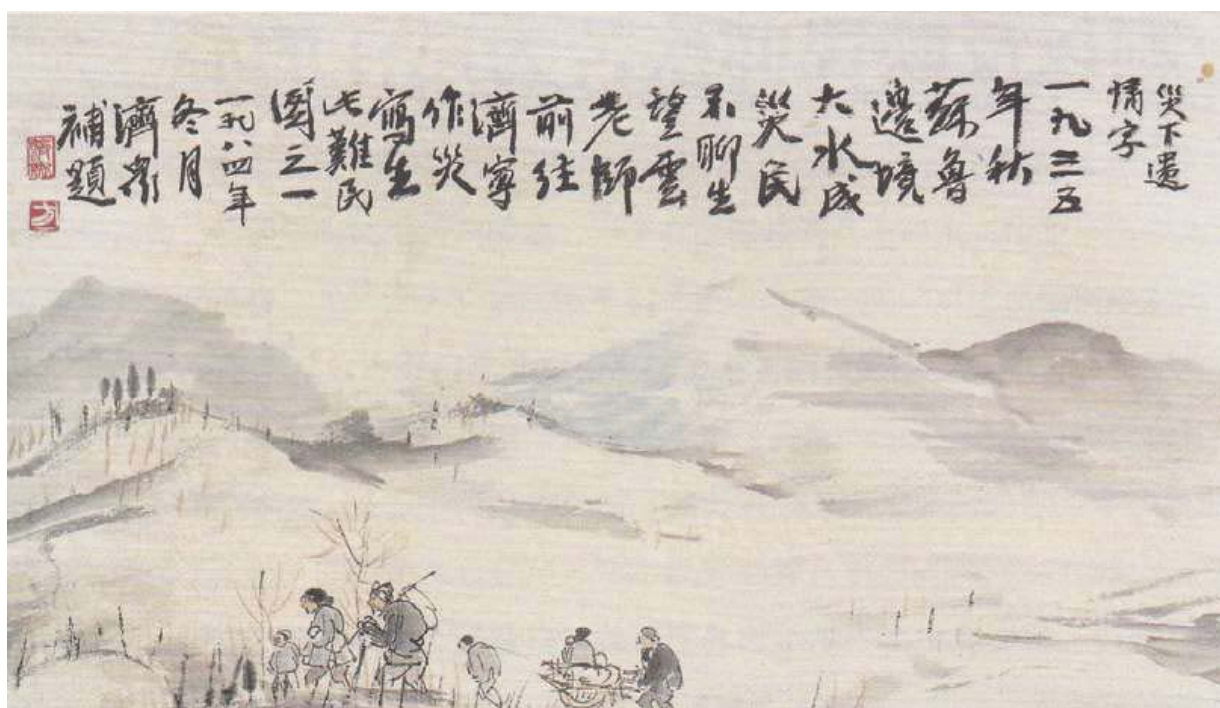 災下遺
情字
一九三五
年秋
蘇魯
邊境
大水成
災民
不聊生
望雲
老師
前往
濟寧
作災
寫生
此難民
圖之一
一九八四年
冬月
濟眾
補題
方